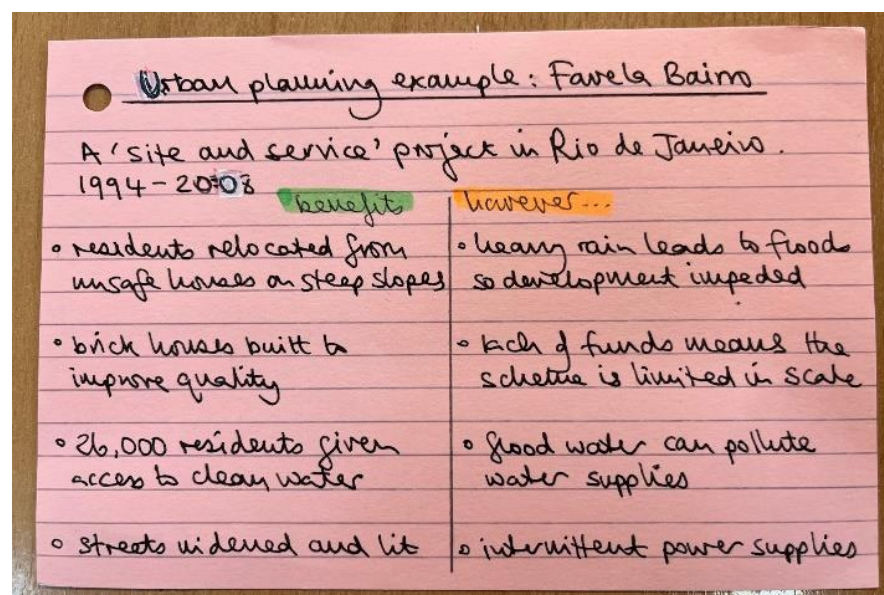 Urban planning example: Favela Bairro
A 'site and service' project in Rio de Janeiro.
1994-2008
benefits
• residents relocated from
unsafe houses on steep slopes
• brick houses built to
improve quality
• 26,000 residents given
access to clean water
• streets widened and lit
however...
• heavy rain leads to floods
so development impeded
• lack of funds means the
scheme is limited in scale
• flood water can pollute
water supplies
• intermittent power supplies